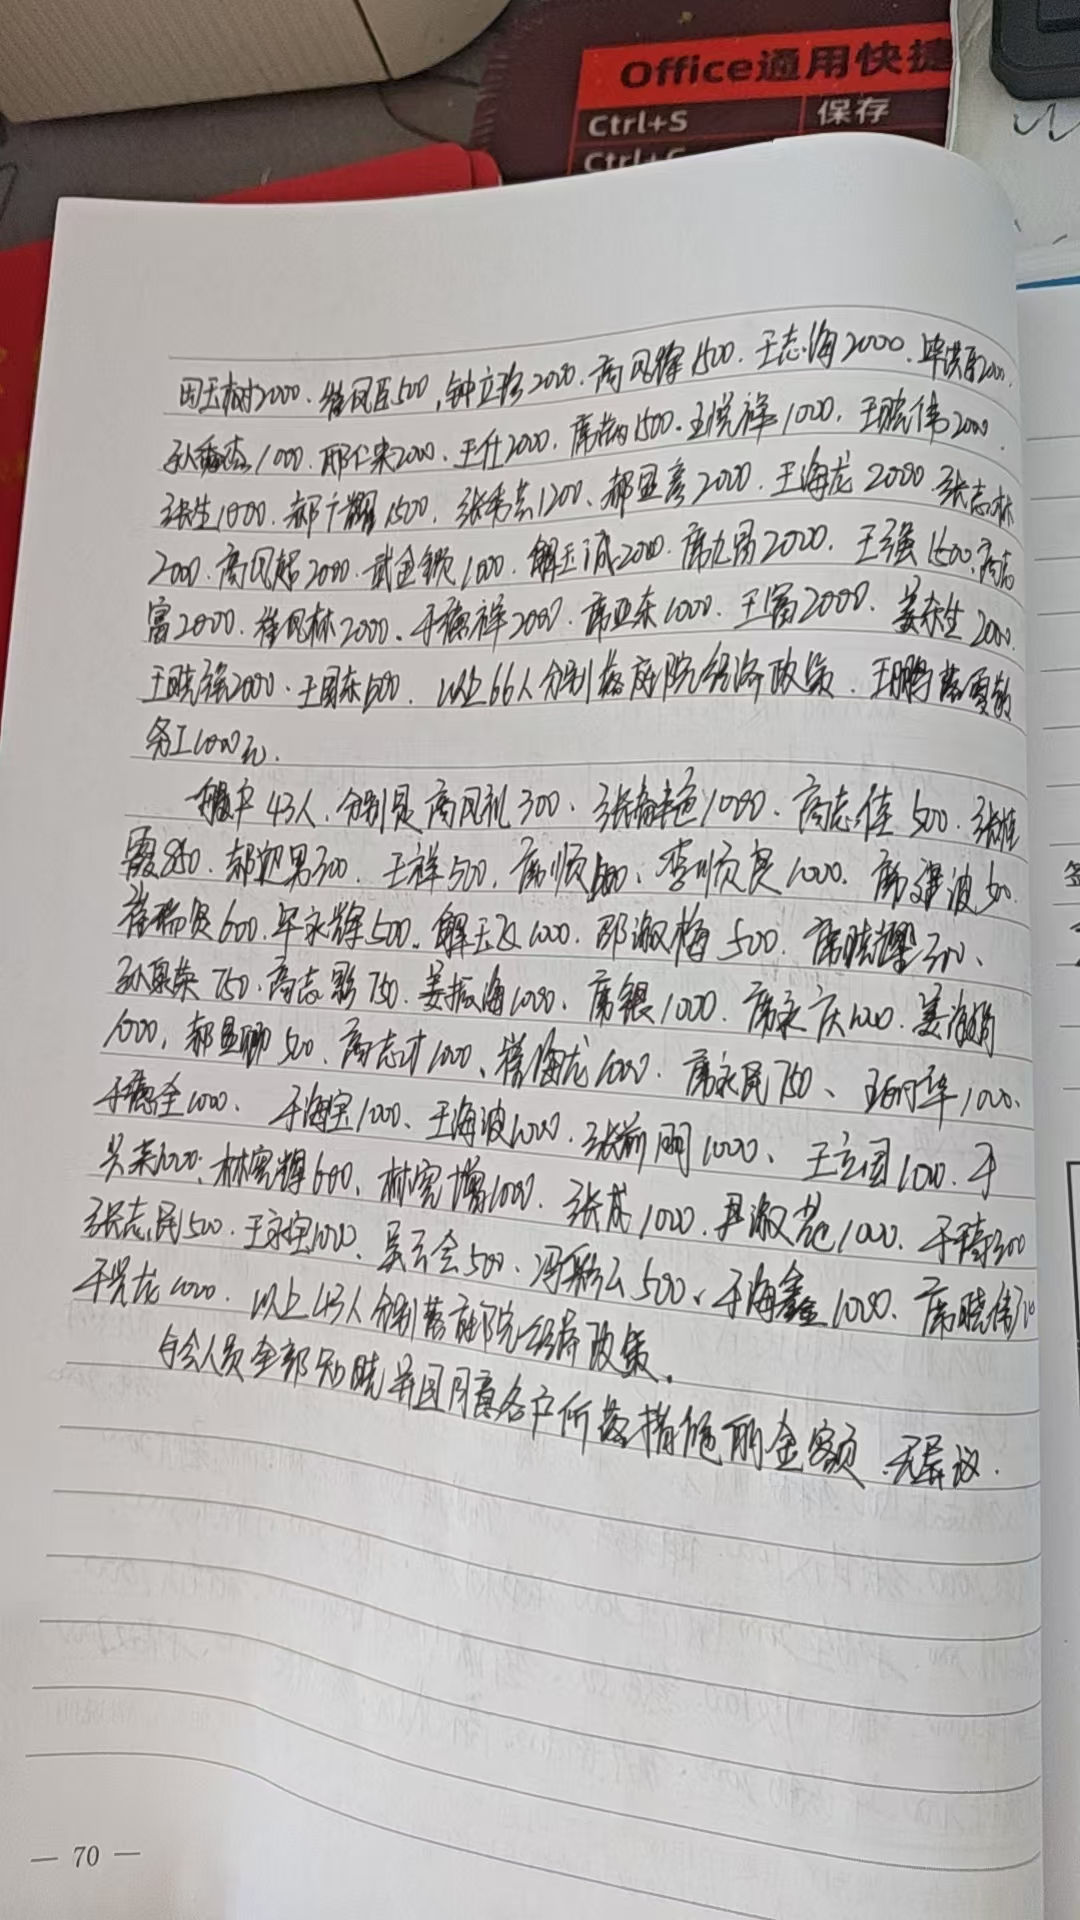 Office通用快捷
Ctrl+S 保存
Ctrl+C
田玉树2000、崔凤臣500,钟立珍2000、高凤伟1500、王志海2000、毕洪百2000、
孙秀杰1000、邢仁来2000、王仕2000、席1500、王悦祥1000、王晓伟2000、
张生1000、郝广耀1500、张秀芸1200、郝显富2000、王海龙2000、张志林
2000、高凤超2000、武金锁1000、解玉诚2000、席九君2000、王强1500、高志
富2000、崔凤林2000、于德祥2000、席亚东1000、王富2000、姜东生2000、
王晓强2000、王国东1500、以上66人分别落庭院经济政策、王鹏落
务工1000元.
户43人,分别是高凤礼300、张1000、高志佳500、张桂
霞850、郝迎男300、王祥500、席顺500、李顺良1000、席建波500
崔瑞贤600、毕永辉500、解玉飞1000、邵淑梅500、席晓300、
孙泉英750、高志影750、姜振海1000、席银1000、席永庆1000、姜海娟
1000,郝显卿500、高志才1000、崔海龙1000、席永民750、王树华1000、
于德全1000、于海宝1000、王海波1000、张前明1000、王立国1000、于
兴来1000、林宪辉600、林宪增1000、张成1000、尹淑艳1000、于琦300
张志民500、王永宝1000、吴云会500、冯彩云500、于海鑫1000、席晓伟
于兴龙1000、以上43人分别落庭院经济政策.
与会人员全部知晓并且同意各户所落措施的金额、无异议.
— 70 —